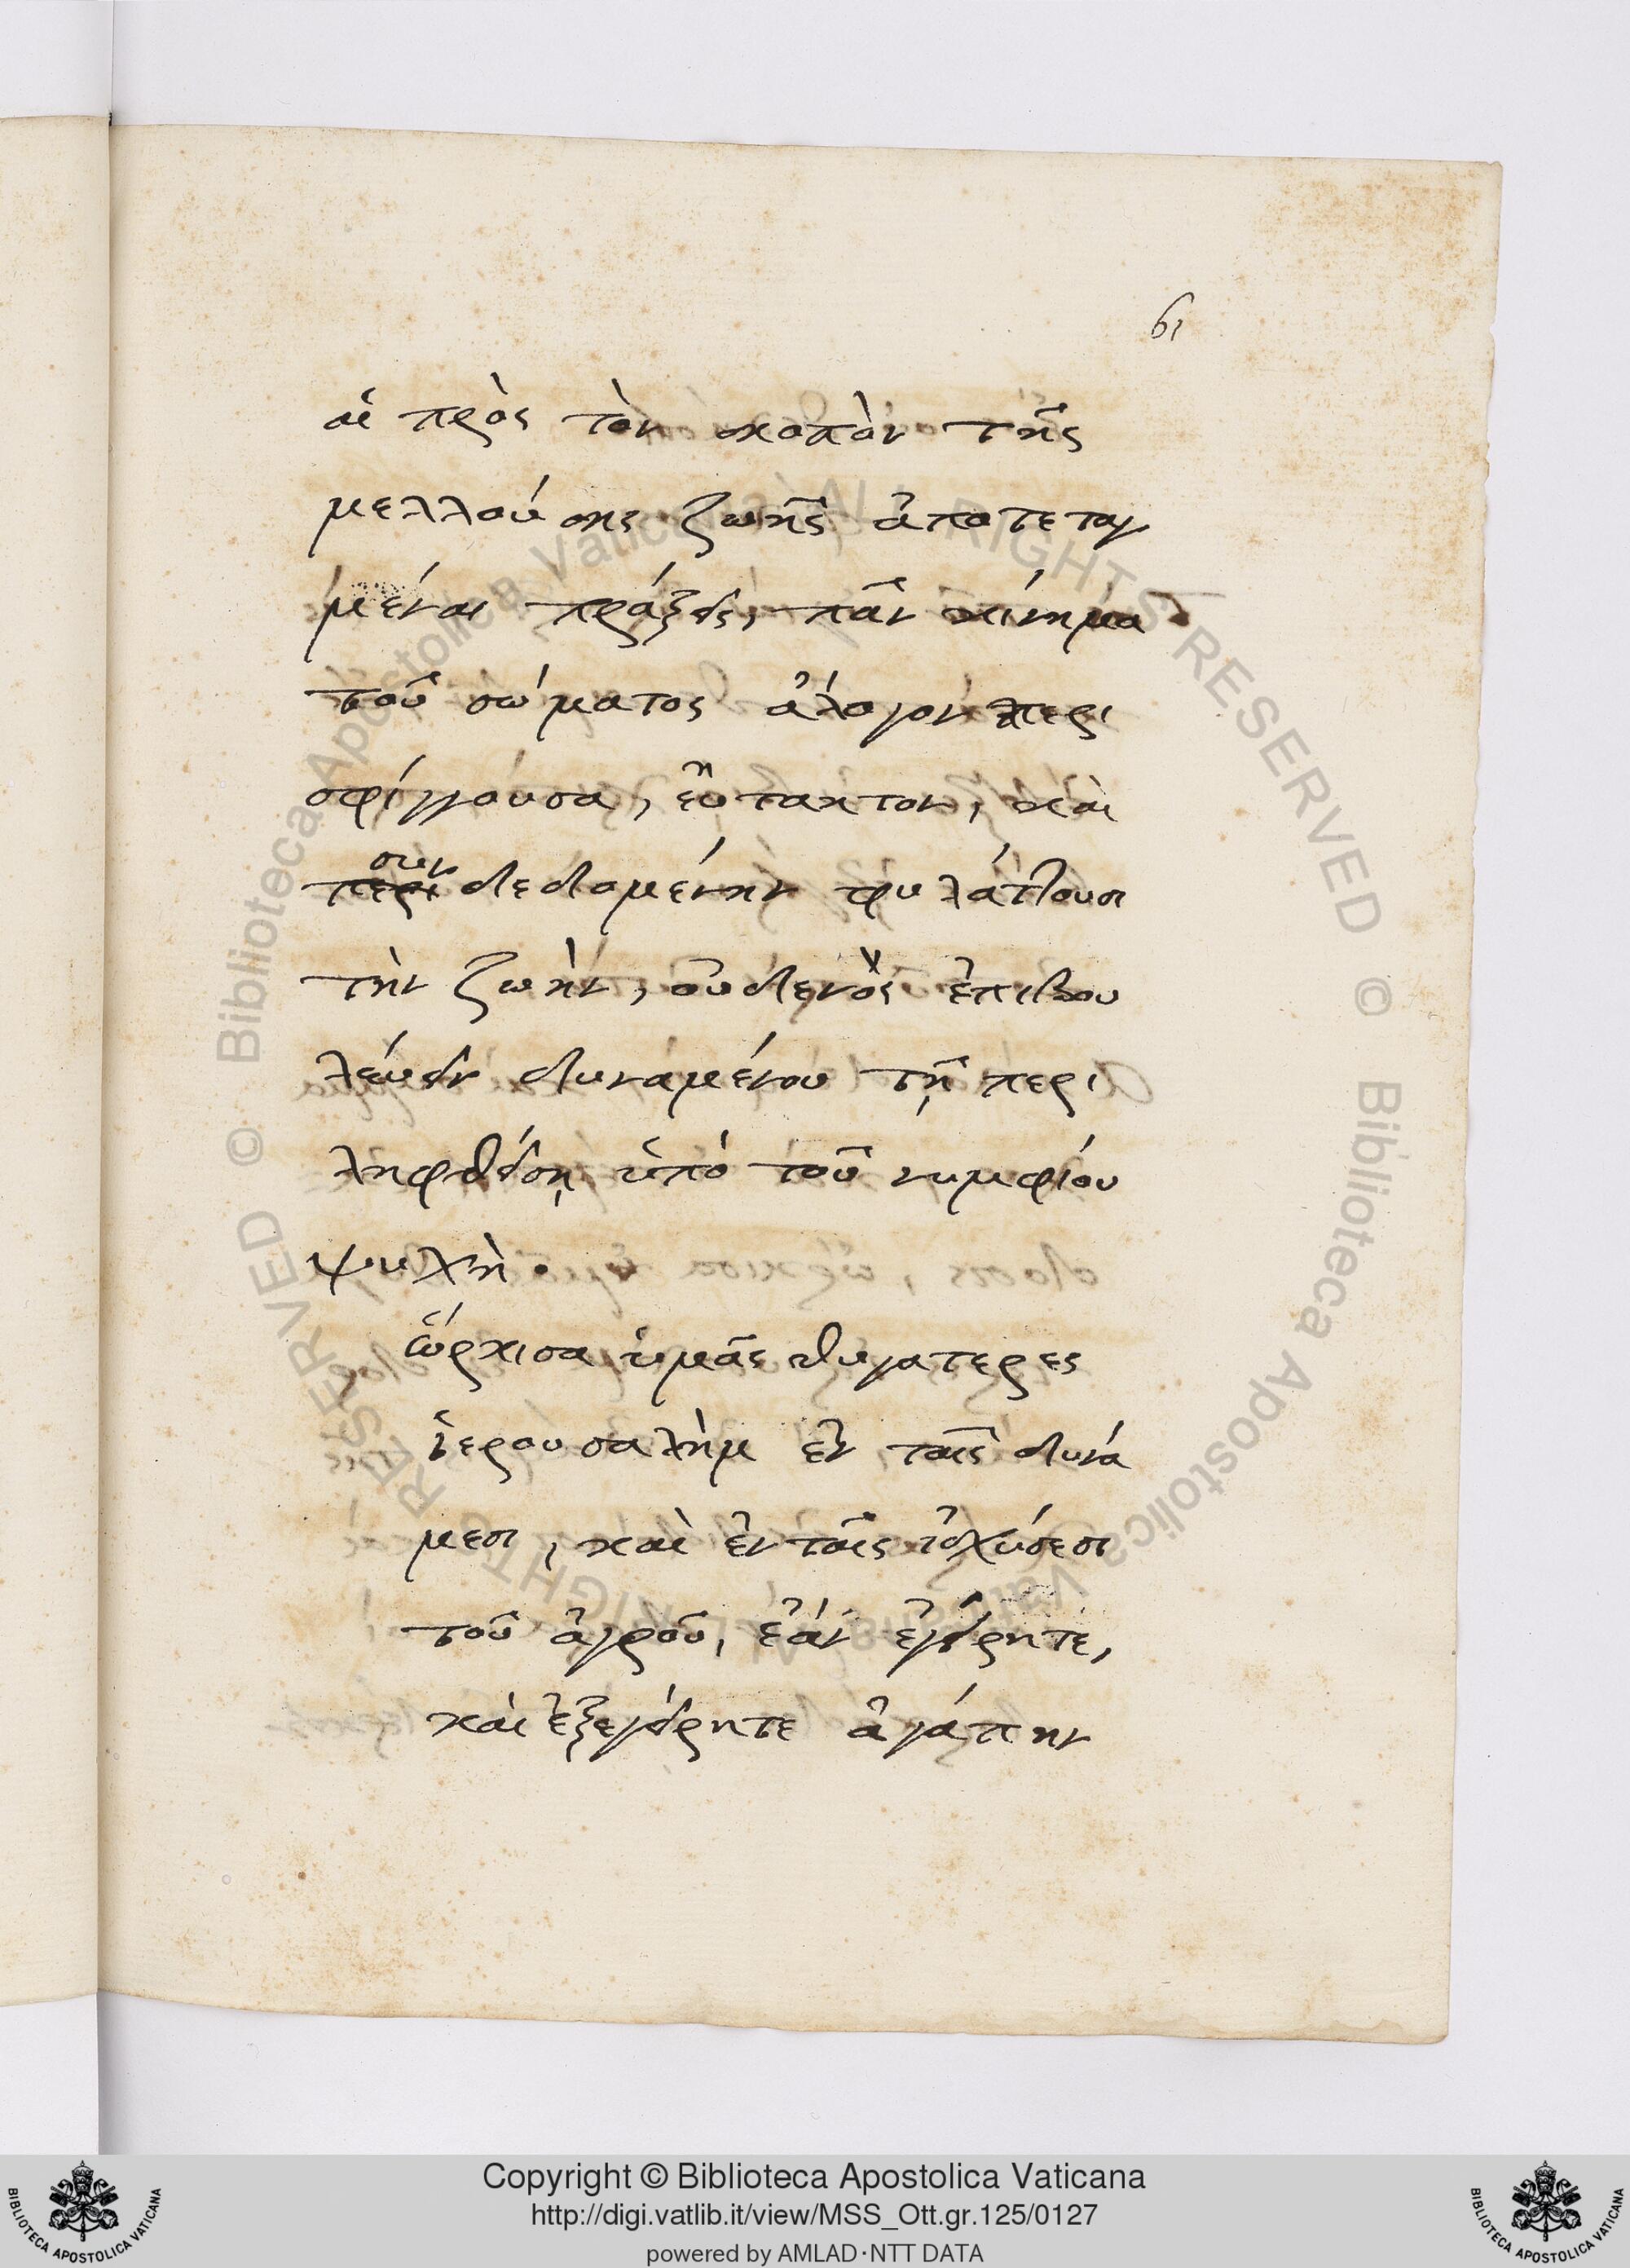 61
αἱ πρὸς τὸν σκοπὸν τῆς
μελλούσης ζωῆς ἀποτεταγ
μέναι πράξεις, πᾶν κίνημα
τοῦ σώματος ἄλογον περι
σφίγγουσα, εὔτακτον, καὶ
συν
περι δεδομένην φυλάττουσι
τὴν ζωὴν, οὐδενὸς ἐπιβου
λεύειν δυναμένου τῇ περι
ληφθείσῃ ὑπὸ τοῦ νυμφίου
ψυχὴ.
ὥρκισα ὑμᾶς θυγατερες
ἱερουσαλὴμ ἐν ταῖς δυνά
μεσι, καὶ ἐν ταῖς ἰσχύσεσι
τοῦ ἀγροῦ, ἐὰν ἐγείρητε,
καὶ ἐξεγείρητε ἀγάπην
© Biblioteca Apostolica Vaticana ALL RIGHTS RESERVED
© Biblioteca Apostolica Vaticana ALL RIGHTS RESERVED
Copyright © Biblioteca Apostolica Vaticana
http://digi.vatlib.it/view/MSS_Ott.gr.125/0127
powered by AMLAD·NTT DATA
BIBLIOTECA APOSTOLICA VATICANA
BIBLIOTECA APOSTOLICA VATICANA